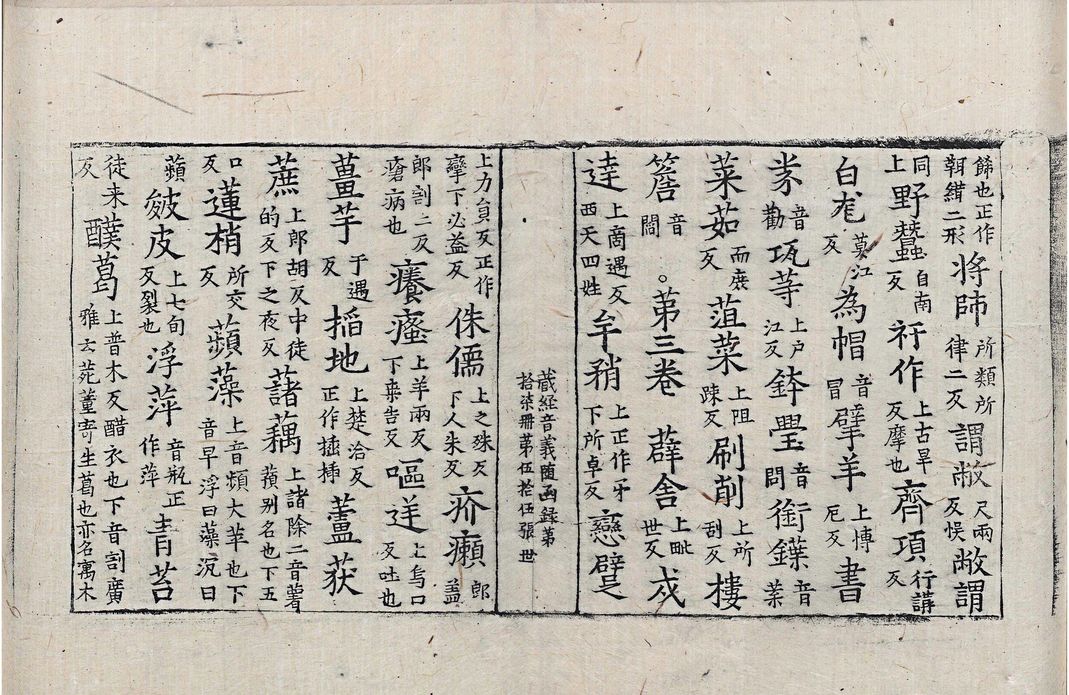 餙也正作將帥所類所謂敝尺兩敝謂
䩭紺二形律二反反悮
同野蠶自南衧作上古旱齊項行講
上反反摩也反
白尨莫江為帽音擘羊上博書
反冒厄反
音瓨等上户鉢瑩音銜鏶音
勸江反問葉
菜茹而庶菹菜上阻刷削上所樓
反踈反刮反
簷音。第三卷薜舎上毗戍
閻世反
逹上商遇反牟矟上正作牙戀躄
西天四姓下所卓反
藏経音義随函録第
拾柒冊第伍拾伍張世
上力負反正作侏儒上之殊反疥癩郎
癵下必益反下人朱反盖
郎割二反癢瘙上羊兩反嘔逆上烏口
瘡病也下桒告反反吐也
薑芋于遇插地上楚洽反蘆荻
反正作揷
蔗上郎胡反中徒藷藕上諸除二音薯
的反下之夜反蕷别名也下五
口蓮梢所交蘋藻上音頻大萍也下
反反音早浮曰藻沉曰
蘋皴皮上七旬浮萍音瓶正青苔
反裂也作蓱
徒来醭葛上普木反醋衣也下音割廣
反雅云菀蕫寄生葛也亦名寓木